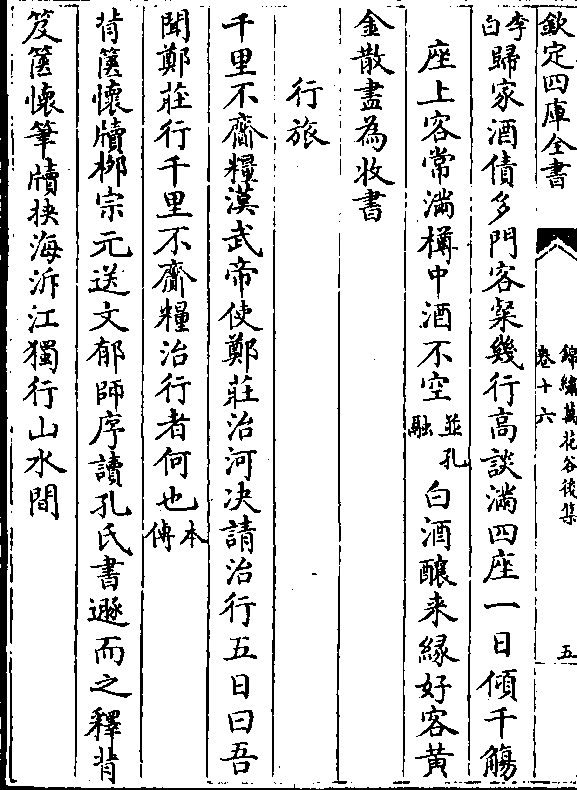 欽定四庫全書
錦繡萬花谷後集
卷十六
五
李白歸家酒債多門客粲幾行高談滿四座一日傾千觴
座上客常滿樽中酒不空並孔融白酒釀來緣好客黄
金散盡為收書
行旅
千里不齎糧漢武帝使鄭莊治河决請治行五日曰吾
聞鄭莊行千里不齎糧治行者何也本傳
背篋懷牘栁宗元送文郁師序讀孔氏書遯而之釋背
笈篋懷筆牘挾海泝江獨行山水間